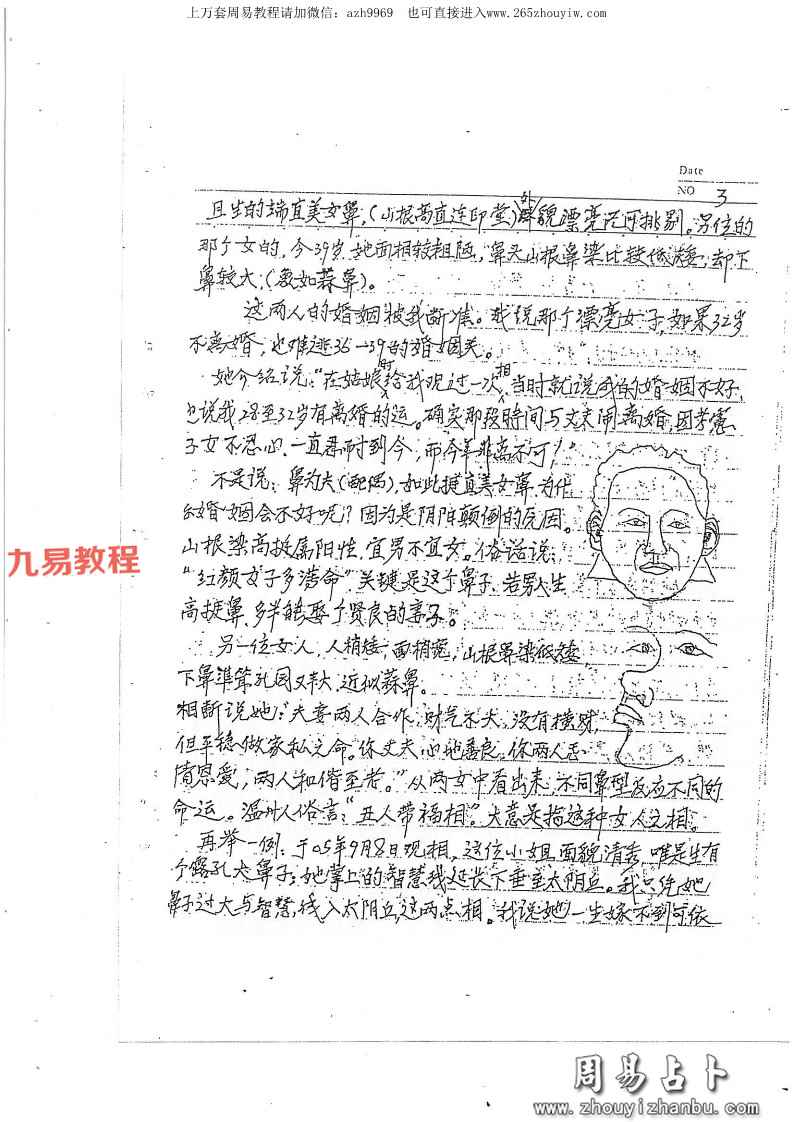 上万套周易教程请加微信：azh9969 也可直接进入www.265zhouyiw.com
Date
NO 3
且生的端直美女鼻,(山根高直连印堂)外貌漂亮无可挑剔。另位的
那个女的,今39岁.她面相较粗陋,鼻头山根鼻梁比较低矮,却下
鼻较大,(类如蒜鼻)。
这两人的婚姻被我断准。我说那个漂亮女子,如果32岁
不离婚,也难逃36-39的婚姻关。
她介绍说:"在姑娘时给我观过一次相,当时就说我的婚姻不好,
也说我28至32岁有离婚的运。确实那段时间与丈夫闹离婚,因考虑
子女不忍心.一直忍耐到今,而今年非离不可,"。
不是说:鼻为夫(配偶),如此挺直美女鼻.为什
么婚姻会不好呢!?因为是阴阳颠倒的原因。
山根梁高挺属阳性.宜男不宜女。俗话说:
"红颜女子多薄命"关键是这个鼻子.若男人生
高挺鼻.多半能娶个贤良的妻子。
九易教程
另一位女人,人稍矮,面稍宽,山根鼻梁低矮,
下鼻準笨孔园又大.近似蒜鼻。
相断说她:"夫妻两人合作.财气不大.没有横财,
但平稳做家私之命。你丈夫心地善良.你两人
情恩爱,两人和偕至老。"从两女中看出来.不同鼻型反应不同的
命运。温州人俗言:"丑人带福相"。大意是指这种女人之相。
再举一例:于05年9月8日观相,这位小姐面貌清秀,唯是生有
个露孔大鼻子;她掌上的智慧线延长下垂至太阴丘。我只凭她
鼻子过大与智慧线入太阴丘,这两点相。我说她一生嫁不到可依
周易占卜
www.zhouyizhanbu.com